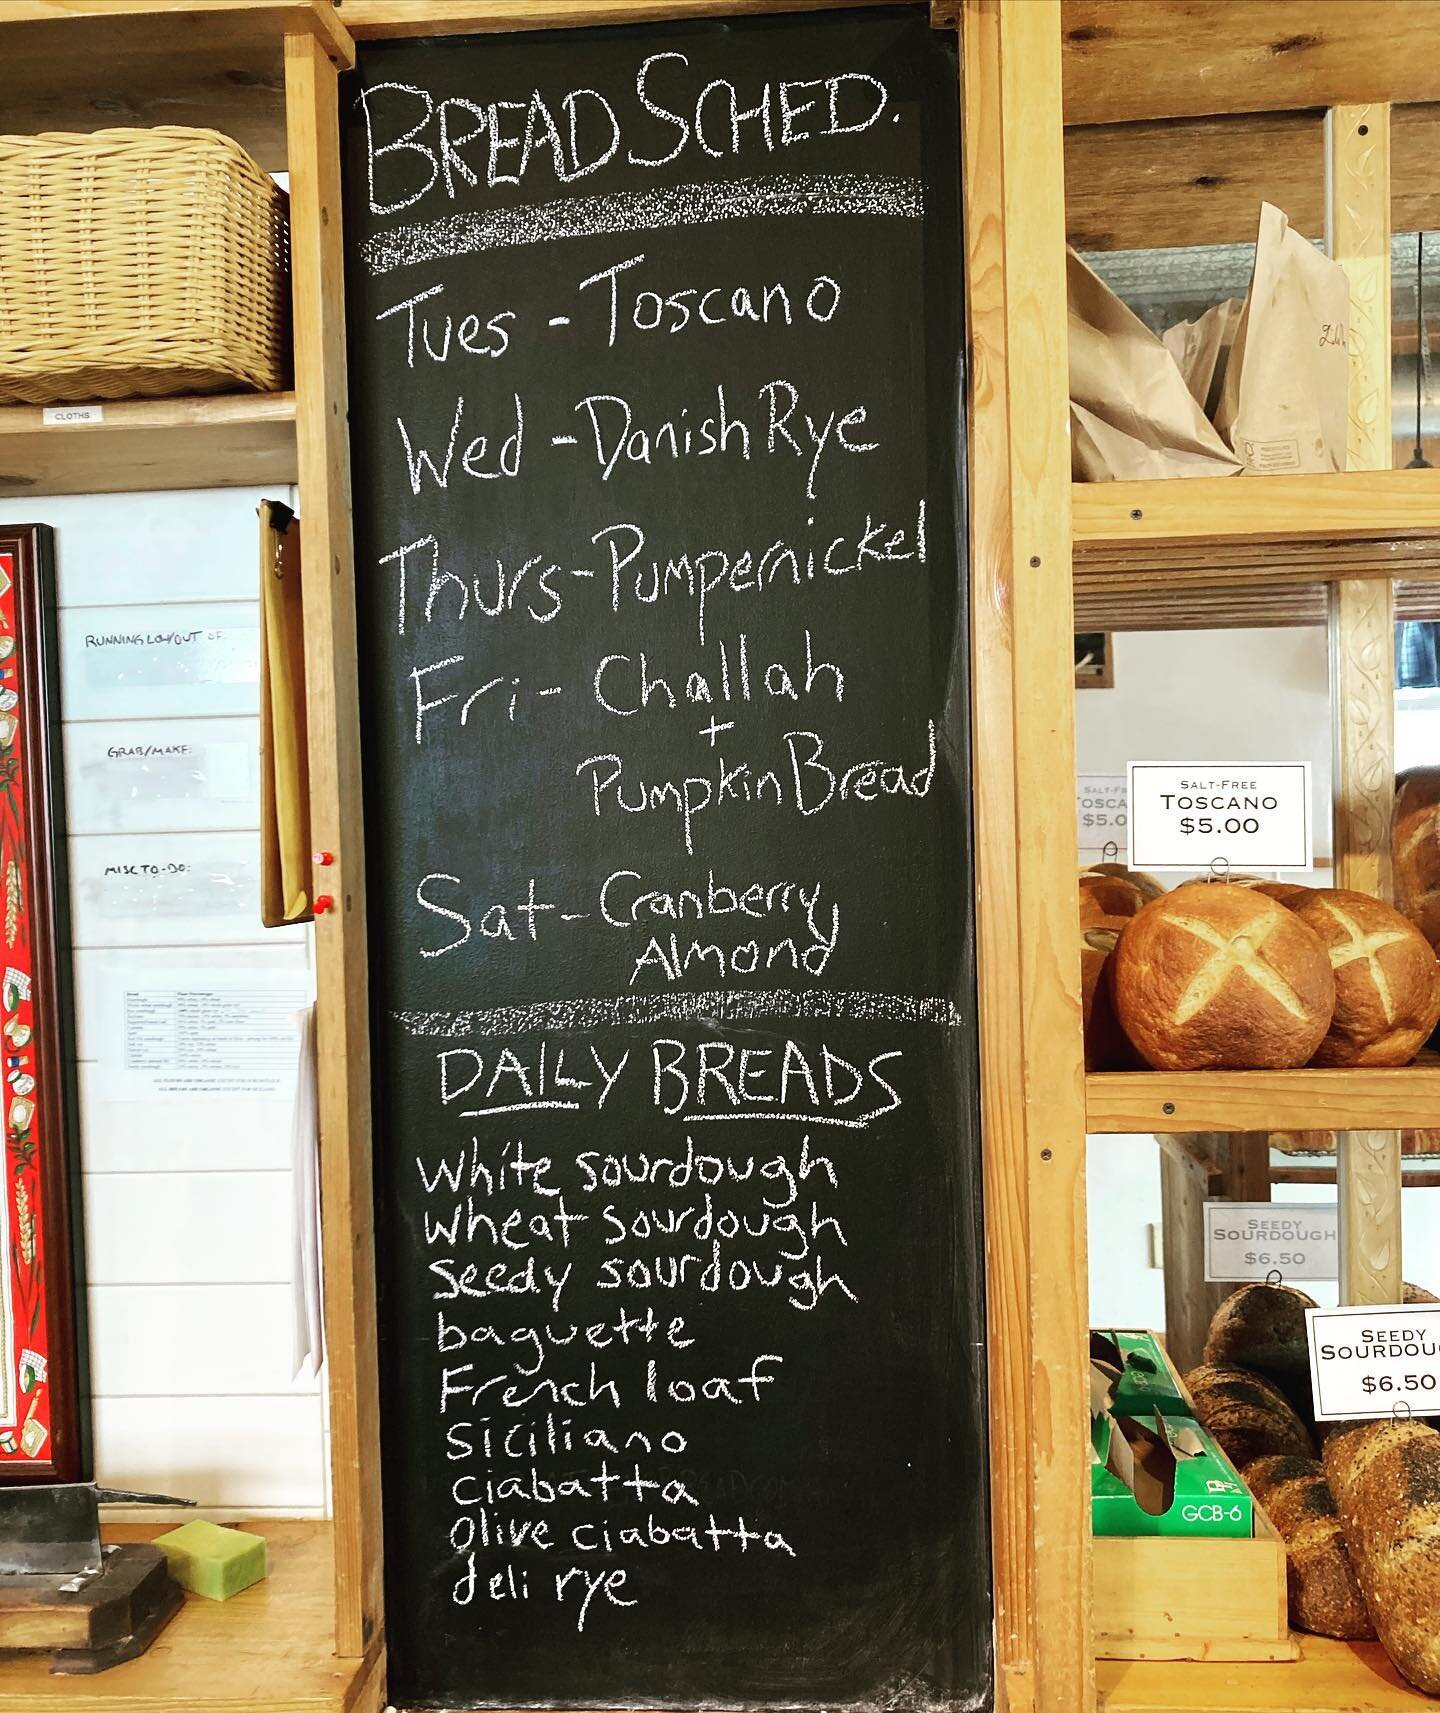 BREAD SCHED.
Tues - Toscano
Wed - Danish Rye
Thurs - Pumpernickel
Fri - Challah
+
Pumpkin Bread
Sat - Cranberry
Almond
DAILY BREADS
White sourdough
Wheat sourdough
Seedy sourdough
baguette
French loaf
Siciliano
ciabatta
Olive ciabatta
deli rye
CLOTHS
RUNNING LOW/OUT OF:
GRAB/MAKE:
MISC TO-DO:
SALT-FREE
TOSCANO
$5.00
SEEDY
SOURDOUGH
$6.50
SEEDY
$6.50
GCB-6